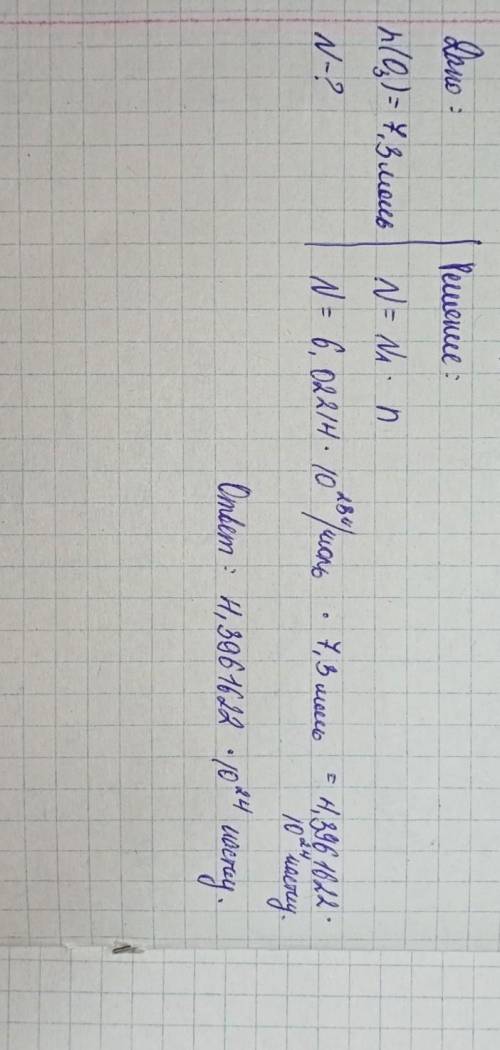 Дано:
n(O₃) = 7,3 моль
N-?
Решение:
N = Nₐ · n
N = 6,02214 · 10²³ ч/моль · 7,3 моль = 4,3961622 ·
10²⁴ частиц.
Ответ: 4,3961622 · 10²⁴ частиц.